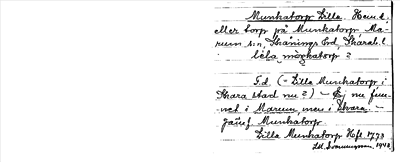 Munkatorp Lilla. Hem.t.
eller torp på Munkatorp Ma-
rum s:n, Skånings hd Skarab. l
lilla munkatorp ?
F.d. (= Lilla Munkatorp i
Skara stad nu ?) – Ej nu fin-
net i Marum, men i Skara. –
Jämf Munkatorp.
Lilla Munkatorp Hfl. 1773
1948